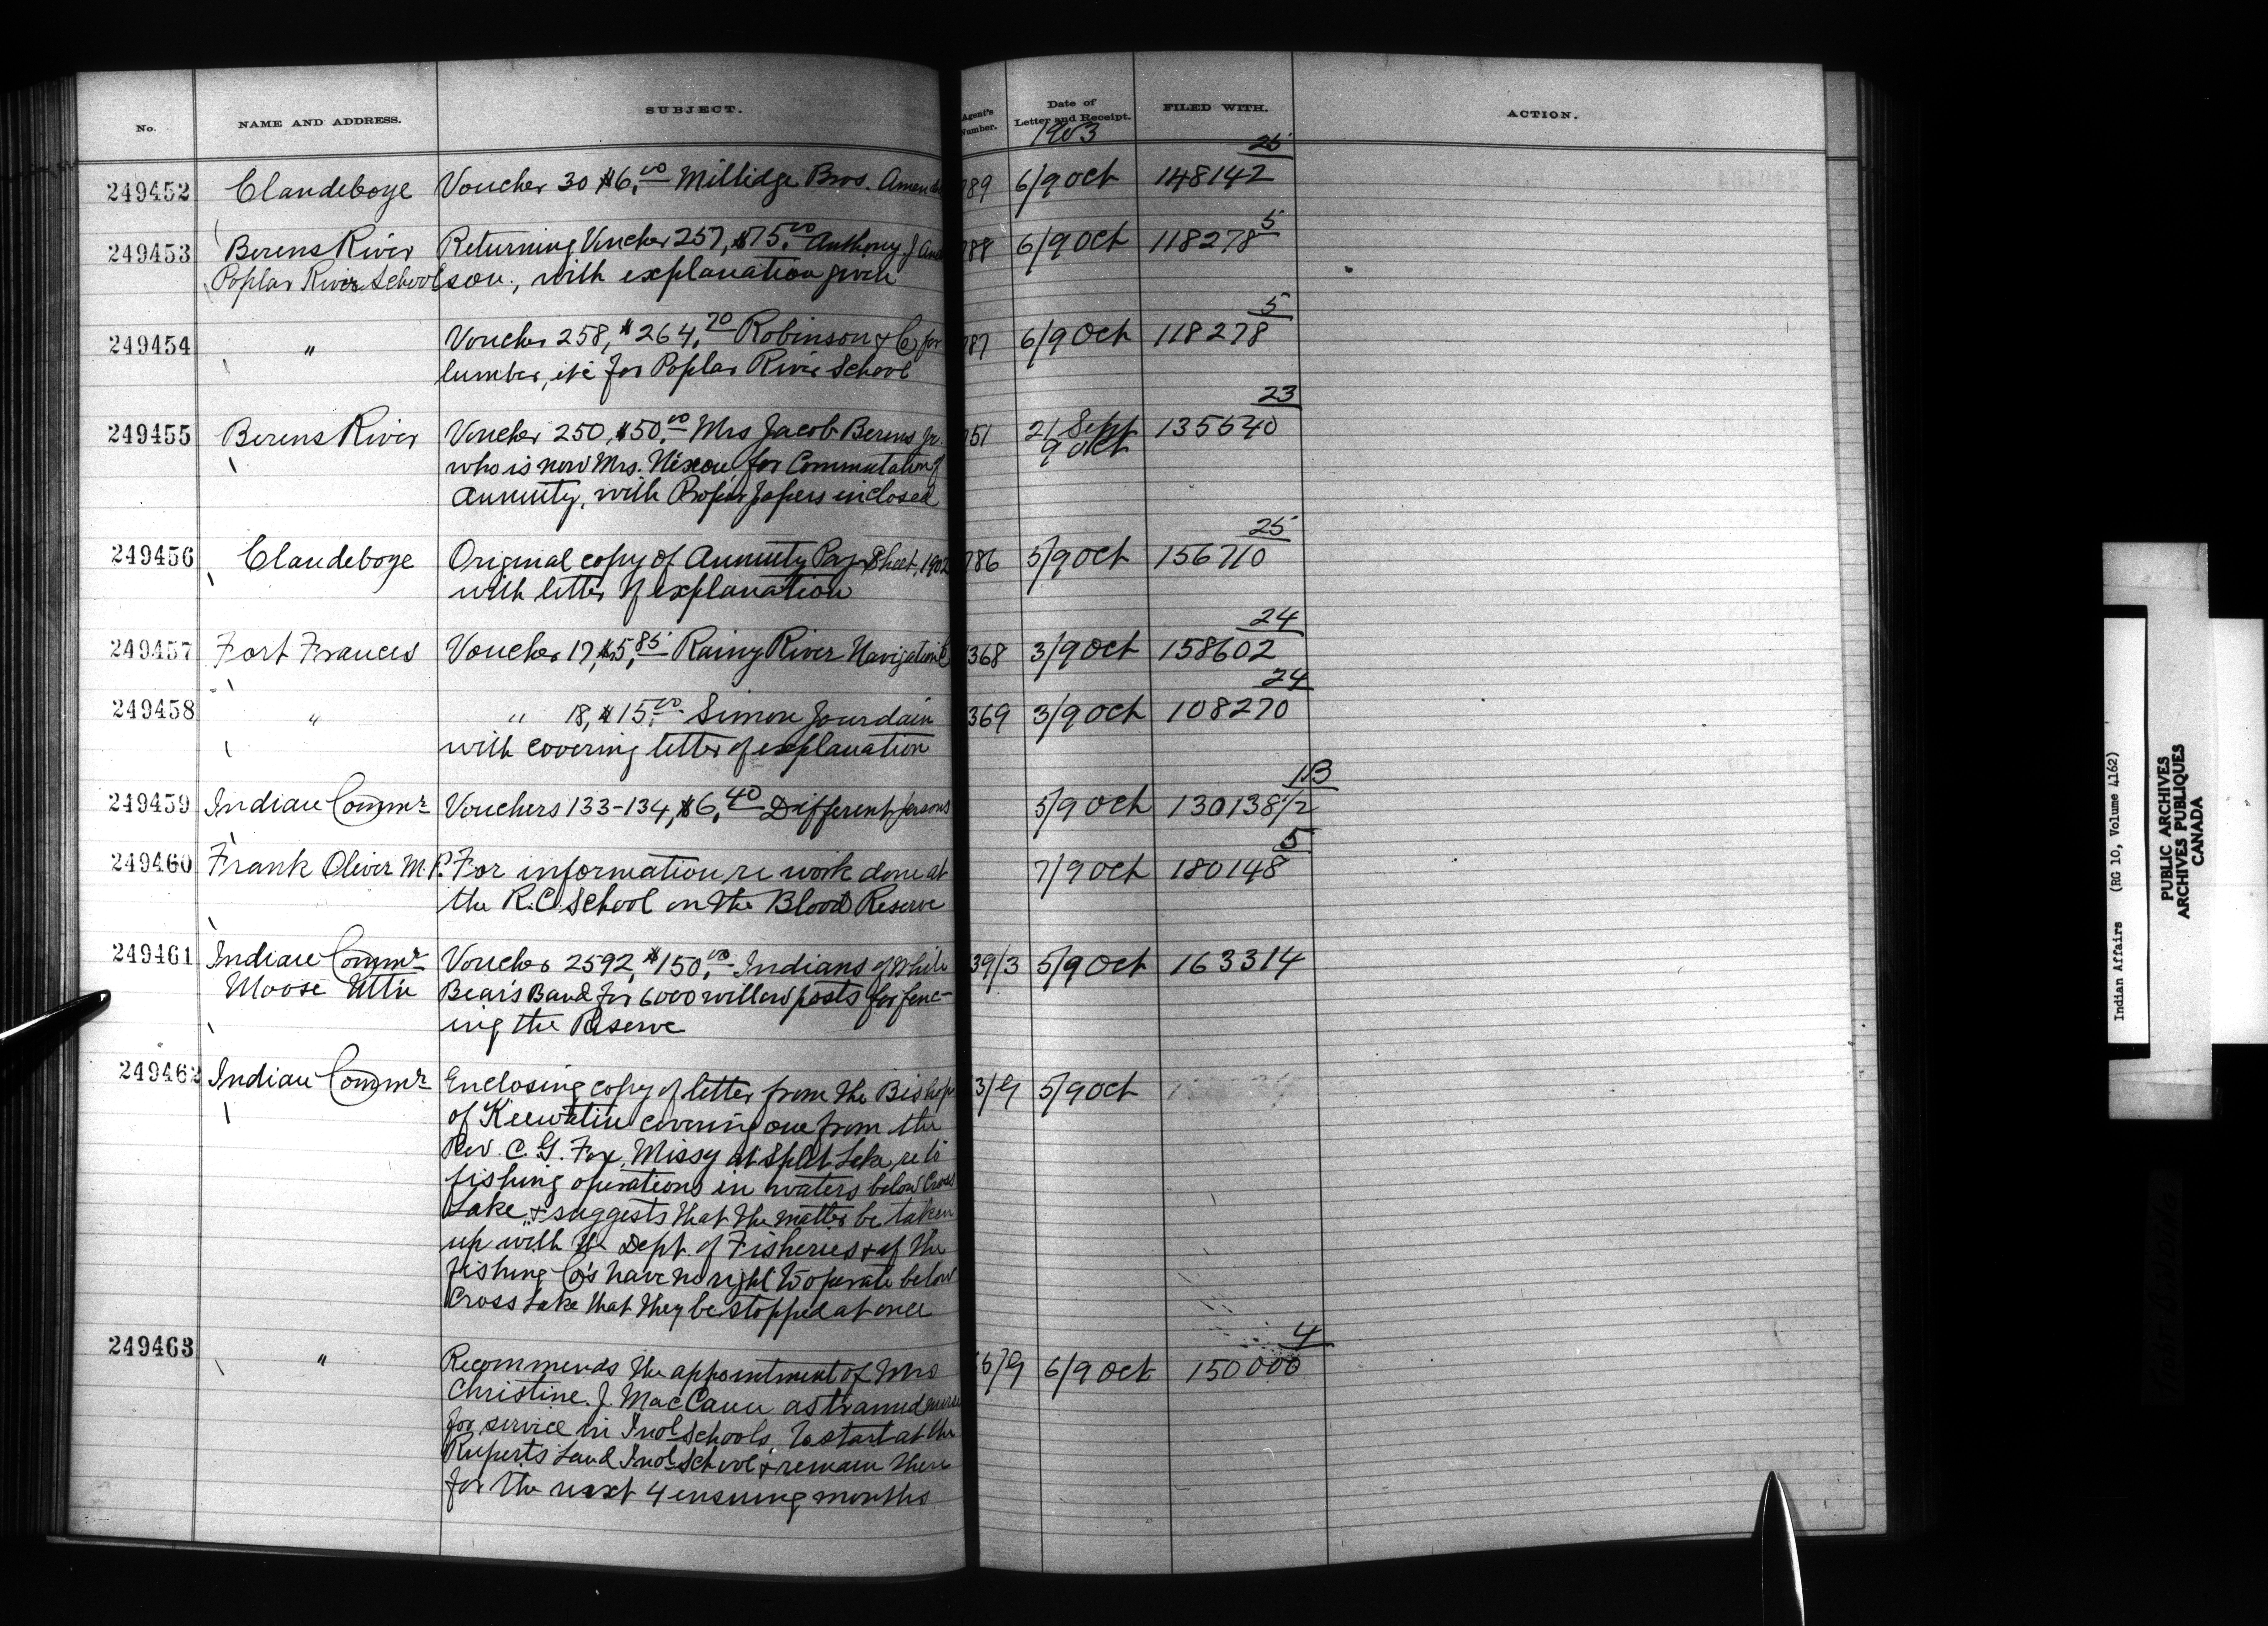 No. NAME AND ADDRESS. SUBJECT. Agent's Number. Date of Letter and Receipt. FILED WITH. ACTION.
1903
25
249452 Clandeboye Voucher 30 $6.00 Millidge Bros. 789 6/9 Oct 148142
5
249453 Berens River Returning Voucher 257, $75.00 Anthony J And 788 6/9 Oct 118278
Poplar River School son, with explanation given
5
249454 " Voucher 258, $264.70 Robinson & Co for 787 6/9 Oct 118278
lumber, etc for Poplar River School
23
249455 Berens River Voucher 250, $50.00 Mrs Jacob Berens Jr. 751 21 Sept 135540
9 Oct
who is now Mrs. Nixon for Commutation of
annuity, with Proper papers inclosed
25
249456 Clandeboye Original copy of Annuity Pay Sheet, 1902 786 5/9 Oct 156710
with letter of explanation
24
249457 Fort Frances Voucher 17, $5.85 Rainy River Navigation Co 368 3/9 Oct 158602
24
249458 " " 18, $15.00 Simon Jourdain 369 3/9 Oct 108270
with covering letter of explanation
113
249459 Indian Commr Vouchers 133-134, $6.40 Different persons 5/9 Oct 130138 1/2
5
249460 Frank Oliver M.P. For information re work done at 7/9 Oct 180148
the R.C. School on the Blood Reserve
249461 Indian Commr Voucher 2592, $150.00 Indians of White 39/3 5/9 Oct 163314
Moose Mtn Bear's Band for 6000 willow posts for fenc-
ing the Reserve
249462 Indian Commr Enclosing copy of letter from the Bishop 3/9 5/9 Oct
of Keewatin covering one from the
Rev. C. G. Fox, Missy at Split Lake, re to
fishing operations in waters below Cross
Lake, & suggests that the matter be taken
up with the Dept. of Fisheries & if the
fishing Co's have no right to operate below
Cross Lake that they be stopped at once
4
249463 " Recommends the appointment of Mrs 6/9 6/9 Oct 150000
Christine J. MacCann as trained nurse
for service in Indl Schools to start at the
Ruperts Land Indl School & remain there
for the next 4 ensuing months
Indian Affairs (RG 10, Volume 4162)
PUBLIC ARCHIVES
ARCHIVES PUBLIQUES
CANADA